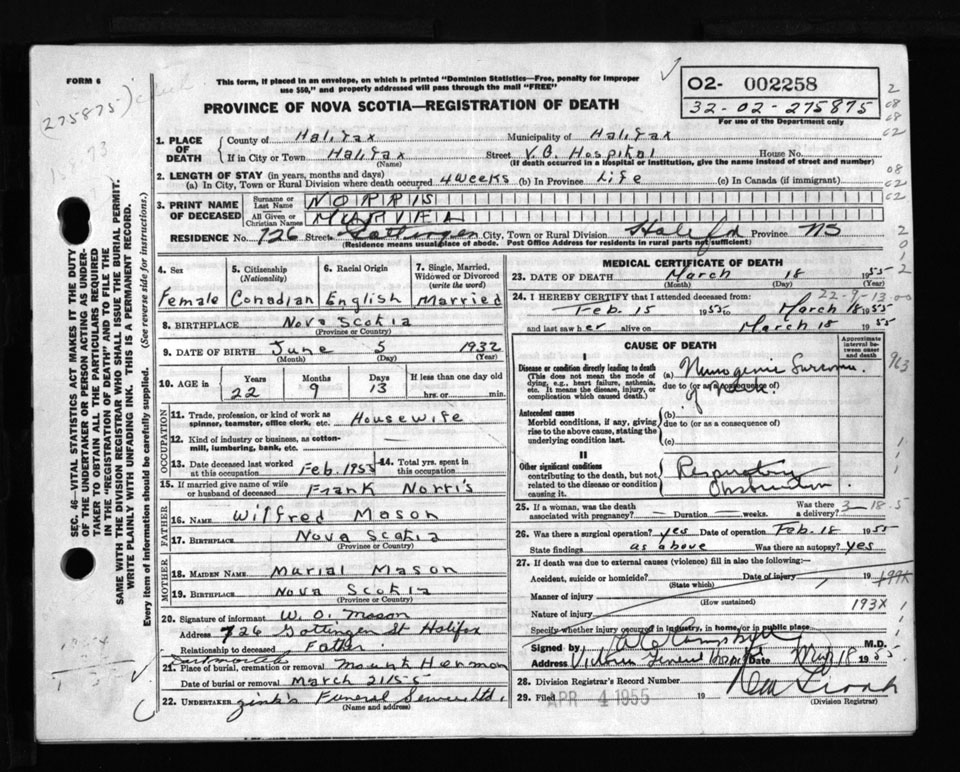 FORM 6
275875)
This form, if placed in an envelope, on which is printed "Dominion Statistics—Free, penalty for improper
use $50," and properly addressed will pass through the mail "FREE"
PROVINCE OF NOVA SCOTIA—REGISTRATION OF DEATH
02- 002258
32-02-275875
For use of the Department only
1. PLACE OF DEATH
County of Halifax Municipality of Halifax
If in City or Town Halifax Street V.G. Hospital House No.
(Name) (If death occurred in a Hospital or institution, give the name instead of street and number)
2. LENGTH OF STAY (in years, months and days)
(a) In City, Town or Rural Division where death occurred 4 weeks (b) In Province Life (c) In Canada (if immigrant)
3. PRINT NAME OF DECEASED
Surname or Last Name NORRIS
All Given or Christian Names MURIEL
RESIDENCE No. 726 Street Gottingen City, Town or Rural Division Halifax Province NS
(Residence means usual place of abode. Post Office Address for residents in rural parts not sufficient)
4. Sex Female
5. Citizenship (Nationality) Canadian
6. Racial Origin English
7. Single, Married, Widowed or Divorced (write the word) Married
8. BIRTHPLACE Nova Scotia
(Province or Country)
9. DATE OF BIRTH June 5 1932
(Month) (Day) (Year)
10. AGE in Years Months Days If less than one day old
22 9 13 hrs. or min.
OCCUPATION
11. Trade, profession, or kind of work as spinner, teamster, office clerk, etc. Housewife
12. Kind of industry or business, as cotton-mill, lumbering, bank, etc.
13. Date deceased last worked at this occupation Feb. 1955
14. Total yrs. spent in this occupation
15. If married give name of wife or husband of deceased Frank Norris
FATHER
16. NAME Wilfred Mason
17. BIRTHPLACE Nova Scotia
(Province or Country)
MOTHER
18. MAIDEN NAME Marial Mason
19. BIRTHPLACE Nova Scotia
(Province or Country)
20. Signature of informant W. O. Mason
Address 726 Gottingen St Halifax
Relationship to deceased Father
Dartmouth
21. Place of burial, cremation or removal Mount Herman
Date of burial or removal March 21/55
22. UNDERTAKER Zink's Funeral Service Ltd.
(Name and address)
MEDICAL CERTIFICATE OF DEATH
23. DATE OF DEATH March 18 1955
(Month) (Day)
22-9-13-00
24. I HEREBY CERTIFY that I attended deceased from
Feb. 15 1955 to March 18 1955
and last saw her alive on March 18 1955
CAUSE OF DEATH
Approximate interval between onset and death
I
Disease or condition directly leading to death
(This does not mean the mode of dying, e.g., heart failure, asthenia, etc. It means the disease, injury, or complication which caused death.)
(a) Neurogenic Sarcoma
due to (or as a consequence of)
of neck.
Antecedent causes
Morbid conditions, if any, giving rise to the above cause, stating the underlying condition last.
(b)
due to (or as a consequence of)
(c)
II
Other significant conditions
contributing to the death, but not related to the disease or condition causing it.
Respiratory
Obstruction.
25. If a woman, was the death associated with pregnancy? — Duration — weeks. Was there a delivery?
3-18-5
26. Was there a surgical operation? yes Date of operation Feb. 18 1955
State findings as above Was there an autopsy? yes
27. If death was due to external causes (violence) fill in also the following:
Accident, suicide or homicide? Date of injury 19
(State which)
Manner of injury
(How sustained)
Nature of injury
193X
Specify whether injury occurred in industry, in home, or in public place
Signed by M.D.
Address Victoria General Hospital Date Mar 18 1955
28. Division Registrar's Record Number
29. Filed APR 4 1955 19
(Division Registrar)
SEC. 46 VITAL STATISTICS ACT MAKES IT THE DUTY
OF THE UNDERTAKER OR PERSON ACTING AS UNDER-
TAKER TO OBTAIN ALL THE PARTICULARS REQUIRED
IN THE "REGISTRATION OF DEATH" AND TO FILE THE
SAME WITH THE DIVISION REGISTRAR WHO SHALL ISSUE THE BURIAL PERMIT.
WRITE PLAINLY WITH UNFADING INK. THIS IS A PERMANENT RECORD.
Every item of information should be carefully supplied. (See reverse side for instructions.)